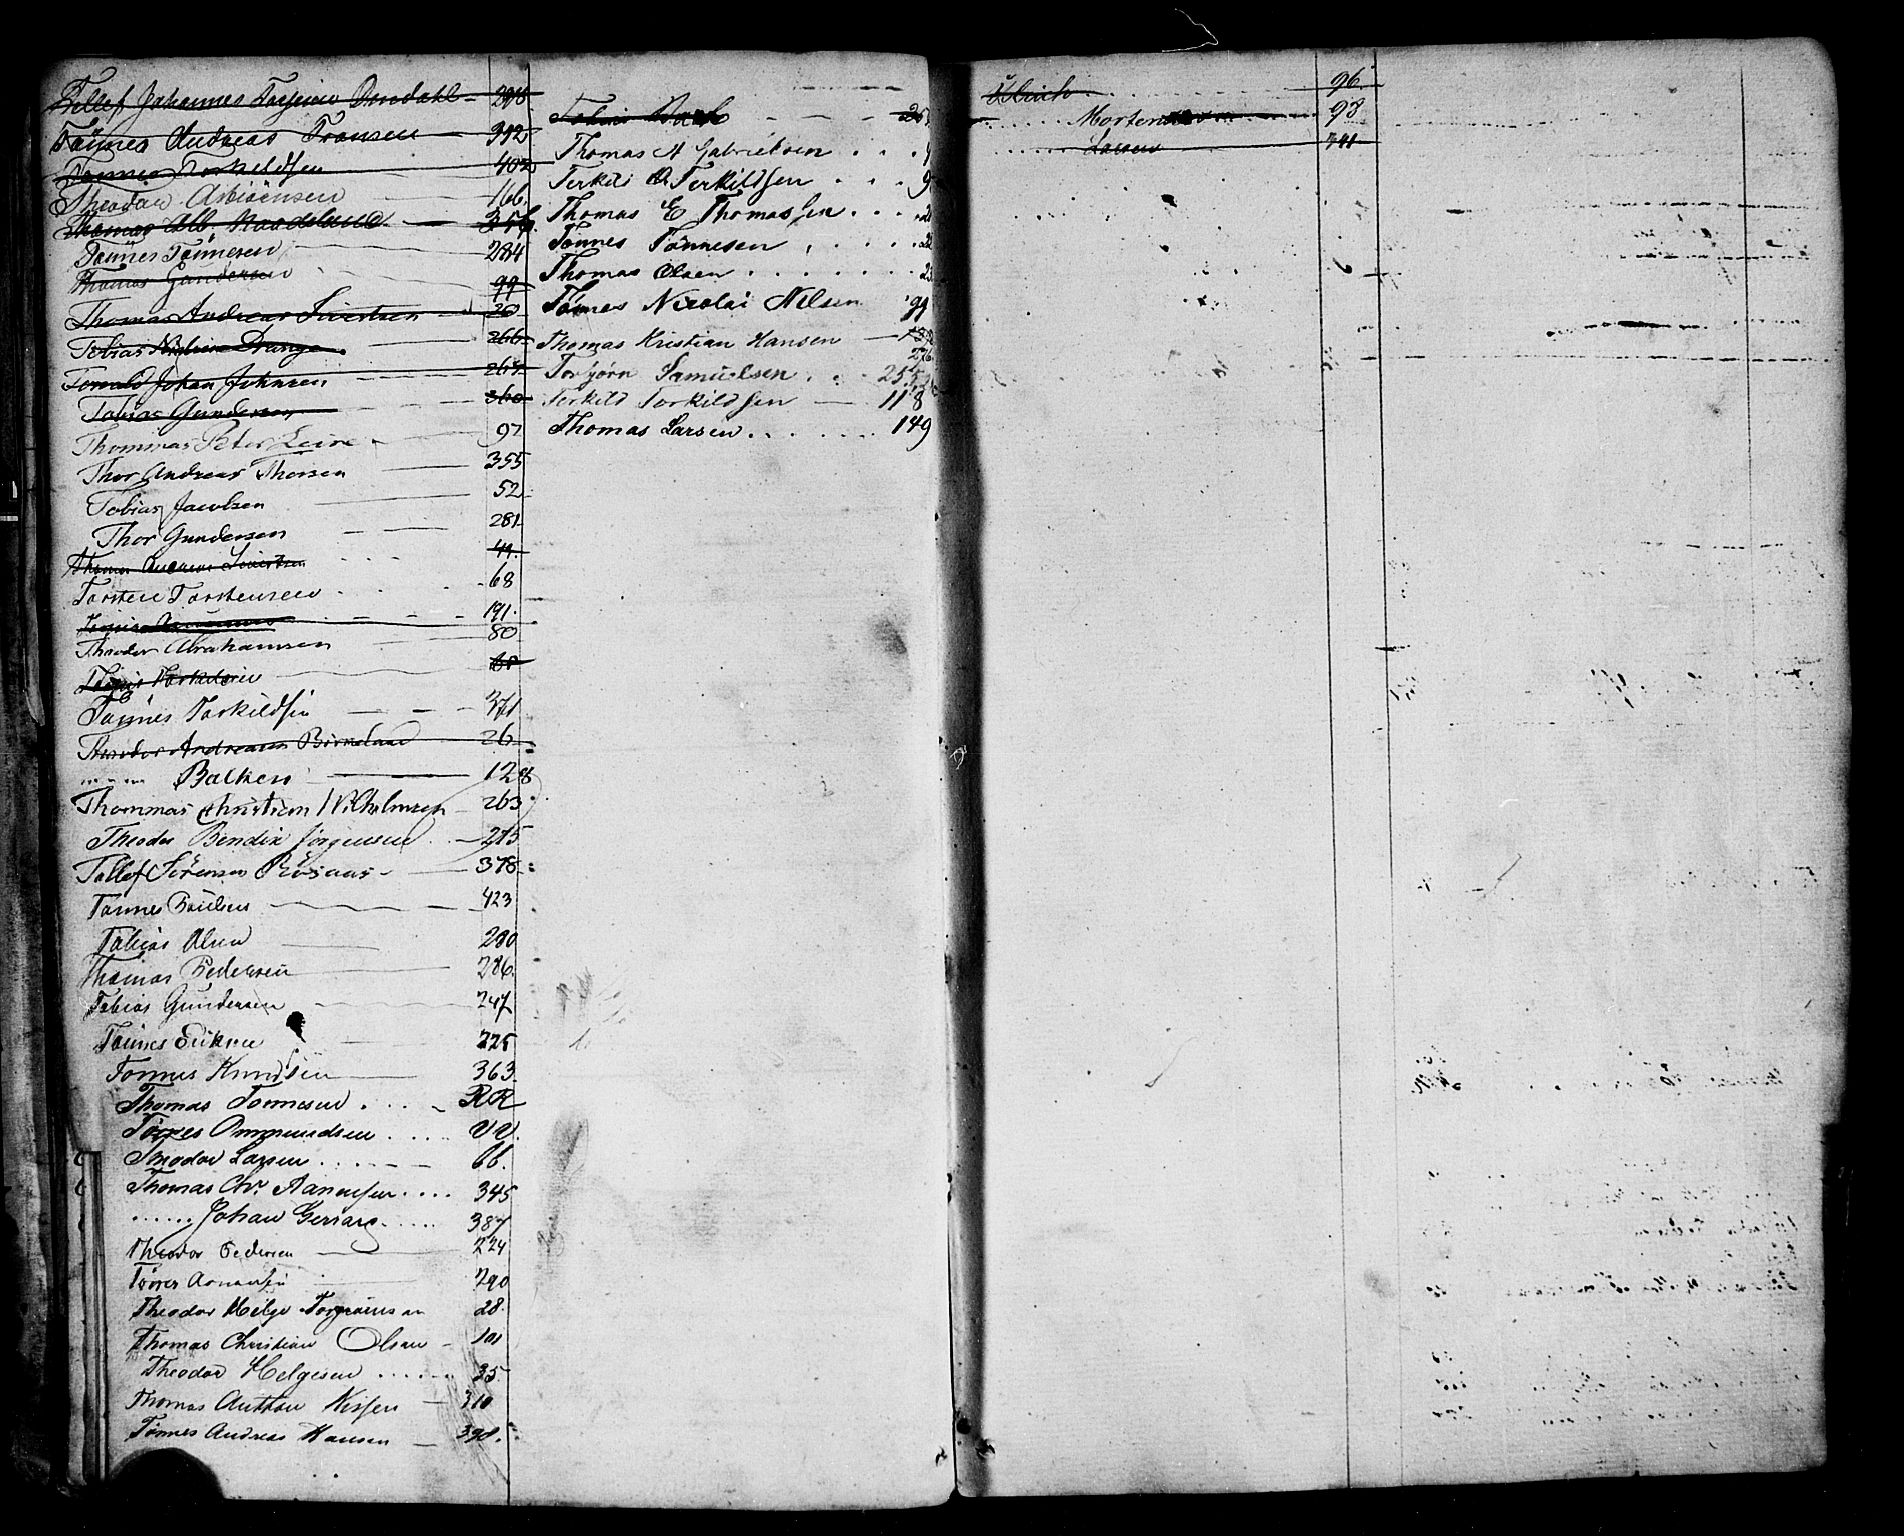 Tellef Johannes Torjusen Omdahl - 298
Tønnes Andreas Fransen 392
Tønnes Torkildsen 402
Theodor Asbiörnsen 166.
Thomas Alb. 356.
Tønnes Tønnesen 284
Thomas Gundersen 99
Thomas Andreas Sivertsen 20
Tobias Drange 266
Tomald Johan Johnsen 267
Tobias Gundersen 360
Thommas Peter Leire 97
Thor Andreas Thorsen 355
Tobias Jacobsen 52
Thor Gundersen 281
Thomas Andreas Sivertsen 49.
Torsten Torstensen 68
191.
Theodor Abrahamsen 80
Tønnes Torkildsen
Tønnes Torkildsen 371
Theodor Andreasen Birkeland 26
" " " Balken 128
Thommas Christian Wilhelmsen 263
Theodor Bendix Jørgensen 275
Tellef Sörensen Rosaas 378
Tønnes Poulsen 423
Tobias Olsen 280
Thomas Pedersen 286.
Tobias Gundersen 247
Tønnes Eriksen 225
Tonnes Knudsen 363
Thomas Tønnesen . . . . RR
Tønnes Ommundsen . . . . VV.
Theodor Larsen . . . . . 66.
Thomas Chr. Aanensen . . . . 345
. . . . . . Johan Gerrard . . . . . 387
Theodor Pedersen 224
Tönnes Aanensen 290
Theodor Helge Torgrimsen 28.
Thomas Christian Olsen - 101
Theodor Helgesen . . . . . . 35.
Thomas Anthon Nissen - 310
Tönnes Andreas Hansen - 398.
Tobias
Thomas A Gabrielsen . . .
Terkild O. Terkildsen . . . 9
Thomas E Thomassen . . . .
Tønnes Tønnesen . . . . .
Thomas Olsen . . . . . . .
Tønnes Nicolai Nilsen 99
Thomas Kristian Hansen
276
Torbjørn Samuelsen . . . 255
Terkild Torkildsen — 118
Thomas Larsen . . . . . . . 149
Ulrich . . . . 96.
. . . . . . Mortensen 98
. . . . . . Larsen 341